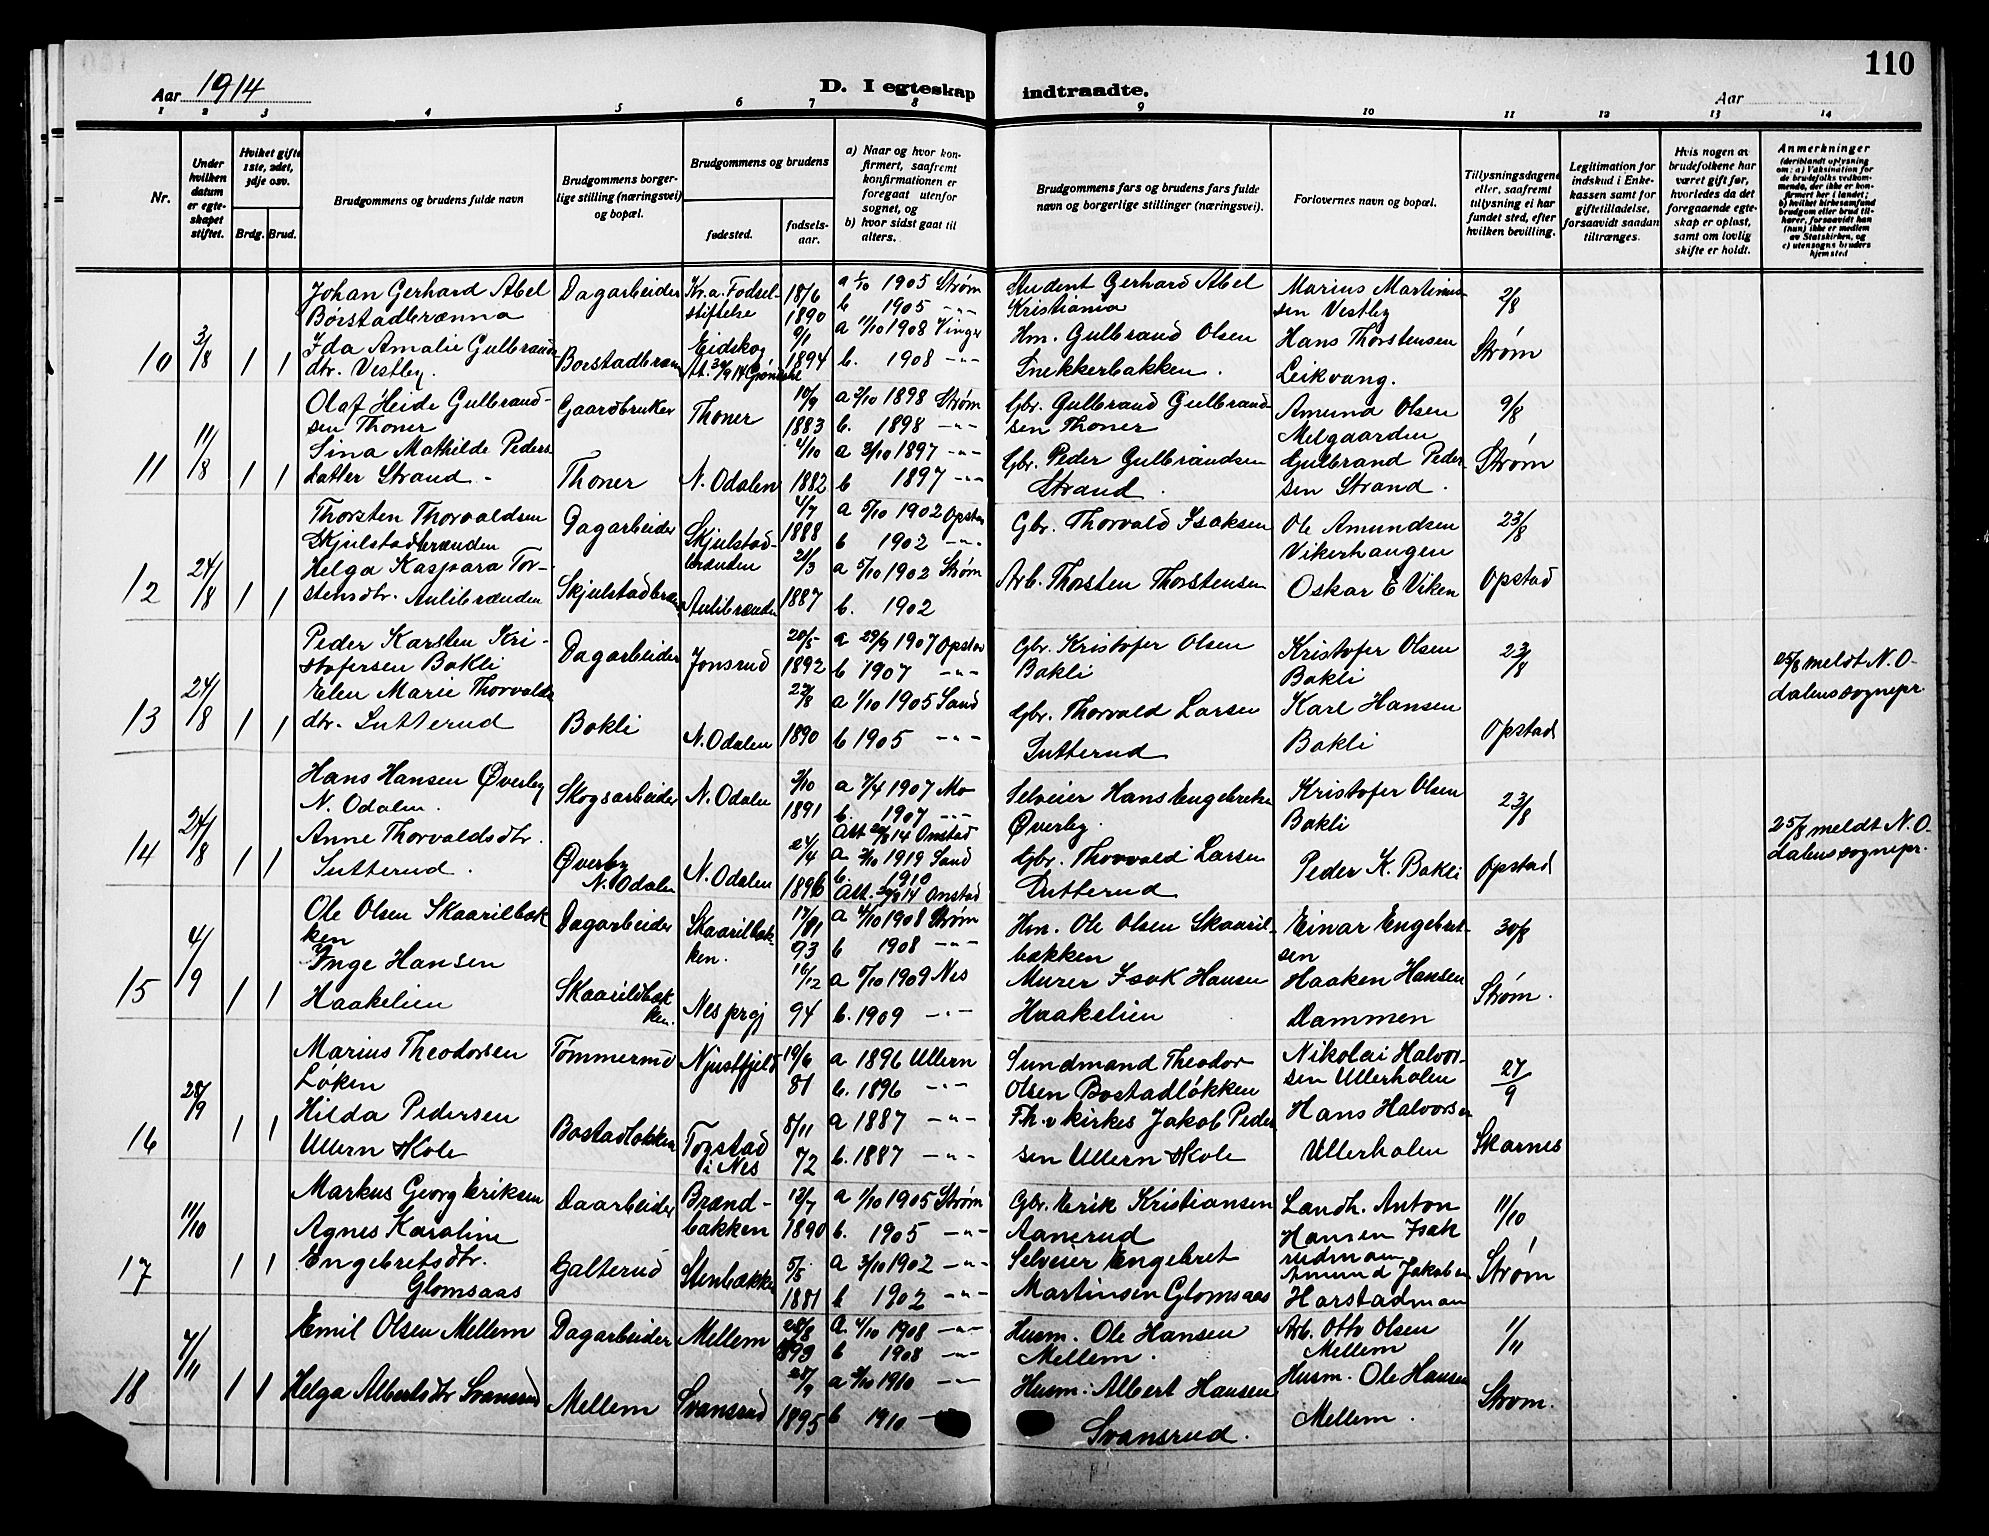 110
Aar 1914
D. I egteskap indtraadte.
Aar
1 2 3 4 5 6 7 8 9 10 11 12 13 14
Nr.
Under hvilken datum er egteskapet stiftet.
Hvilket gifte 1ste, 2det, 3dje osv.
Brdg. Brud.
Brudgommens og brudens fulde navn
Brudgommens borgerlige stilling (næringsvei) og bopæl.
Brudgommens og brudens
fødested.
fødselsaar.
a) Naar og hvor konfirmert, saafremt konfirmationen er foregaat utenfor sognet, og
b) hvor sidst gaat til alters.
Brudgommens fars og brudens fars fulde navn og borgerlige stillinger (næringsvei).
Forlovernes navn og bopæl.
Tillysningsdagene eller, saafremt tillysning ei har fundet sted, efter hvilken bevilling.
Legitimation for indskud i Enkekassen samt for giftetilladelse, forsaavidt saadan tiltrænges.
Hvis nogen av brudefolkene har været gift før, hvorledes da det foregaaende egteskap er opløst, samt om lovlig skifte er holdt.
Anmerkninger
(deriblandt oplysning om: a) Vaksination for de brudefolks vedkommende, der ikke er konfirmert her i landet; b) hvilket kirkesamfund brudgom eller brud tilhører, forsaavidt han (hun) ikke er medlem av Statskirken, og c) utensogns bruders hjemsted
10 3/8 1 1
Johan Gerhard Abel
Børstadbrænna
Ida Amalie Gulbrands
dtr. Vestby.
Dagarbeider
Kr.a. Fødsel-
stiftelse
Eidskog
18/6
1890
9/1
1894
a 1/10 1905 Strøm
b 1905 -"-
a 11/10 1908 Vinger
b. 1908 -"-
Student Gerhard Abel
Kristiania
Hm. Gulbrand Olsen
Snekkerbakken.
Marius Martinus-
sen Vestby
Hans Thorstensen
Leikvang.
2/8
Strøm
11 11/8 1 1
Olaf Heide Gulbrand-
sen Thoner
Sina Mathilde Peders
datter Strand -
Gaardbruker
Thoner
Thoner
N. Odalen
10/9
1883
4/10
1882
a 2/10 1898 Strøm
b. 1898 -"-
a 3/10 1897 -"-
b 1897 -"-
Gbr. Gulbrand Gulbrand-
sen Thoner
Gbr. Peder Gulbrandsen
Strand.
Amund Olsen
Melgaarden
Gulbrand Peder-
sen Strand.
9/8
Strøm
12 24/8 1 1
Thorsten Thorvaldsen
Skjulstadbrænden
Helga Kaspara Tor-
stensdtr. Aulibrænden
Dagarbeider
Skjulstad-
brænden
Aulibrænden
4/7
1888
21/3
1887
a 5/10 1902 Opstad
b 1902 -"-
a 5/10 1902 Strøm
b. 1902
Gbr. Thorvald Isaksen
Arb. Thorsten Thorstensen
Ole Amundsen
Vikerhaugen
Oskar E Viken
23/8
Opstad
13 24/8 1 1
Peder Karsten Kri-
stofersen Bakli
Elen Marie Thorvalds
dtr. Sutterud
Dagarbeider
Bakli
Jonsrud
N. Odalen
20/5
1892
1890
a 29/9 1907 Opstad
b 1907 -"-
a 1/10 1905 Sand
b 1905 -"-
Gbr. Kristofer Olsen
Bakli
Gbr. Thorvald Larsen
Sutterud
Kristofer Olsen
Bakli
Karl Hansen
Bakli
23/8
Opstad
25/8 meldt N. O-
dalens sognepr.
14 24/8 1 1
Hans Hansen Øverby
N. Odalen.
Anne Thorvaldsdtr.
Sutterud.
Skogsarbeider
Øverby
N. Odalen
N. Odalen
N. Odalen
3/10
1891
24/4
1896
a 7/4 1907 Mo
b. 1907 -"-
b. 1910
Selveier Hans Engebretsen
Øverby.
Gbr. Thorvald Larsen
Sutterud
Kristofer Olsen
Bakli
Peder K. Bakli
23/8
Opstad
25/8 meldt N. O-
dalens sognepr.
15 4/9 1 1
Ole Olsen Skaarilbæk
ken
Inge Hansen
Haakelien
Dagarbeider
Skaarildbæk
ken.
Skaarilbæk-
ken.
Nes prgj
93
16/12
94
a 4/10 1908 Strøm
b 1908 -"-
a 5/10 1909 Nes
b. 1909 -"-
Hm. Ole Olsen Skaaril-
bækken
Murer Isak Hansen
Haakelien
Einar Engebret-
sen
Haaken Hansen
Dammen
30/8
Strøm.
16 28/9 1 1
Marius Theodorsen
Løken
Hilda Pedersen
Ullern Skole
Tømmermd
Bostadløkken
Njustfjeld
Torstad
i Nes
19/6
81
8/11
72
a 1896 Ullern
b. 1896 -"-
a 1887 -"-
b. 1887 -"-
Sundmand Theodor
Olsen Bostadløkken
Fh. v kirkes Jakob Peder
sen Ullern Skole
Nikolai Halvor-
sen Ullerholen
Hans Halvorsen
Ullerholen
27/9
Skarnes
17 11/10 1 1
Markus Georg Eriksen
Agnes Karoline
Engebretsdtr.
Glomsaas
Daarbeider
Galterud
Brænd-
bakken
Stenbækken
12/7
1890
5/5
1881
a 1/10 1905 Strøm
b. 1905 -"-
a 3/10 1902 -"-
b 1902 -"-
Gbr. Erik Kristiansen
Aanerud
Selveier Engebret
Martinsen Glomsaas
Landh. Anton
Hansen Isak
rudmoen
Amund Jakobsen
Harstadmoen
11/10
Strøm
18 7/11 1 1
Emil Olsen Mellem
Helga Albertsdtr Svansrud
Dagarbeider
Mellem
Mellem
Svansrud
28/8
1893
28/9
1895
a. 4/10 1908 -"-
b 1908 -"-
a 2/10 1910 -"-
b 1910
Husm. Ole Hansen
Mellem.
Husm. Albert Hansen
Svansrud.
Arb. Otto Olsen
Mellem
Husm. Ole Hansen
Mellem.
1/11
Strøm.